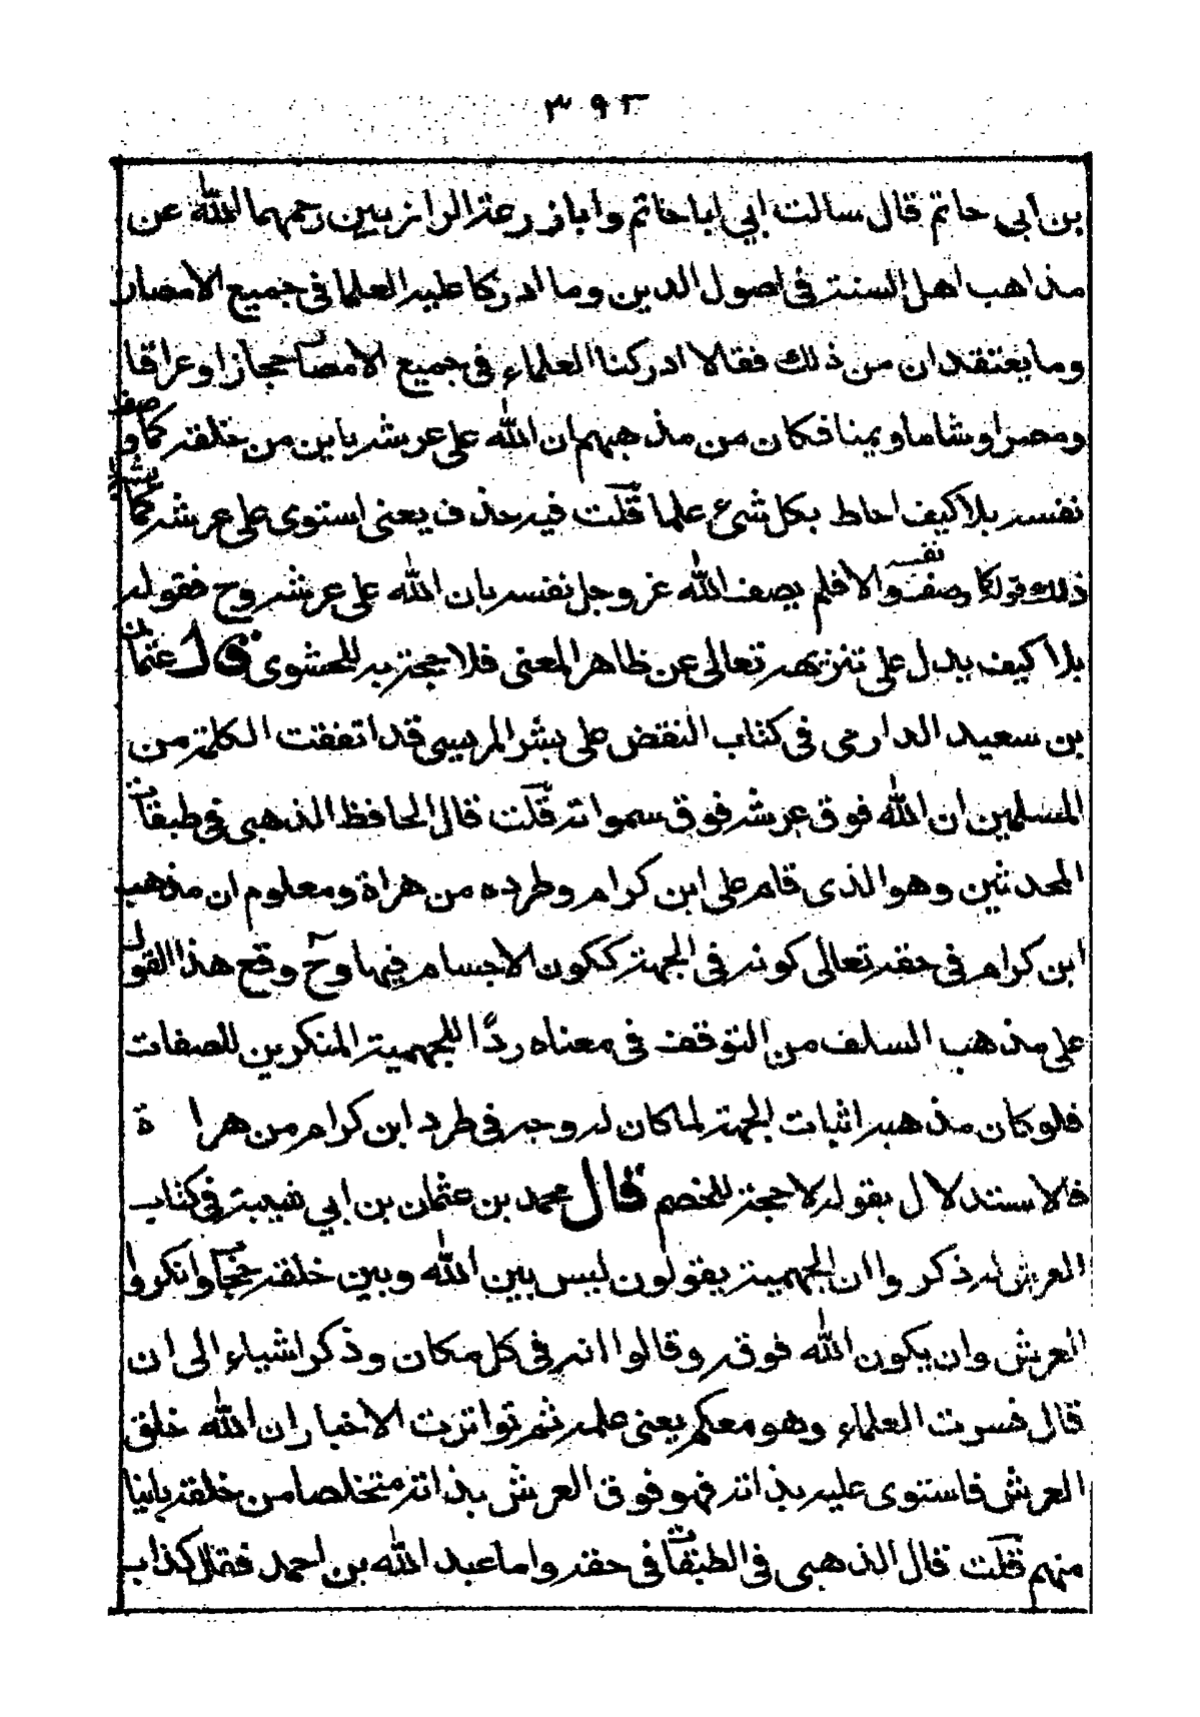 ٣٩٣
بن ابي حاتم قال سالت ابي ابا حاتم وابا زرعة الرازيين رحمهما الله عن
مذاهب اهل السنة في اصول الدين وما ادركا عليه العلما في جميع الامصار
وما يعتقدان من ذلك فقالا ادركنا العلماء في جميع الامصار حجازا وعراقا
ومصرا وشاما ويمنا فكان من مذهبهم ان الله على عرشه باين من خلقه كما وصف
نفسه بلا كيف احاط بكل شئ علما قلت فيه حذف يعني استوى على عرشه كما
ذلك قوله كما وصف نفسه والا فلم يصف الله عز وجل نفسه بان الله على عرشه وح فقوله
بلا كيف يدل على تنزيهه تعالى عن ظاهر المعنى فلا حجة به للحشوى قال عثمان
بن سعيد الدارمى في كتاب النقض على بشر المريسى قد اتفقت الكلمة من
المسلمين ان الله فوق عرشه فوق سمواته قلت قال الحافظ الذهبى في طبقات
المحدثين وهو الذى قام على ابن كرام وطرده من هراة ومعلوم ان مذهب
ابن كرام في حقه تعالى كونه في الجهة ككون الاجسام فيها وح وقع هذا القول
على مذهب السلف من التوقف في معناه ردًا للجهمية المنكرين للصفات
فلو كان مذهبه اثبات الجهة لما كان له وجه في طرد ابن كرام من هراة
فالاستدلال بقوله لا حجة للخصم قال محمد بن عثمان بن ابي شيبة في كتاب
العرش له ذكروا ان الجهمية يقولون ليس بين الله وبين خلقه حجاب وانكروا
العرش وان يكون الله فوقه وقالوا انه في كل مكان وذكر اشياء الى ان
قال فسرت العلماء وهو معكم يعنى علمه ثم تواترت الاخبار ان الله خلق
العرش فاستوى عليه بذاته فهو فوق العرش بذاته متخلصا من خلقه باينا
منهم قلت قال الذهبى في الطبقات في حقه واما عبد الله بن احمد فقال كذاب